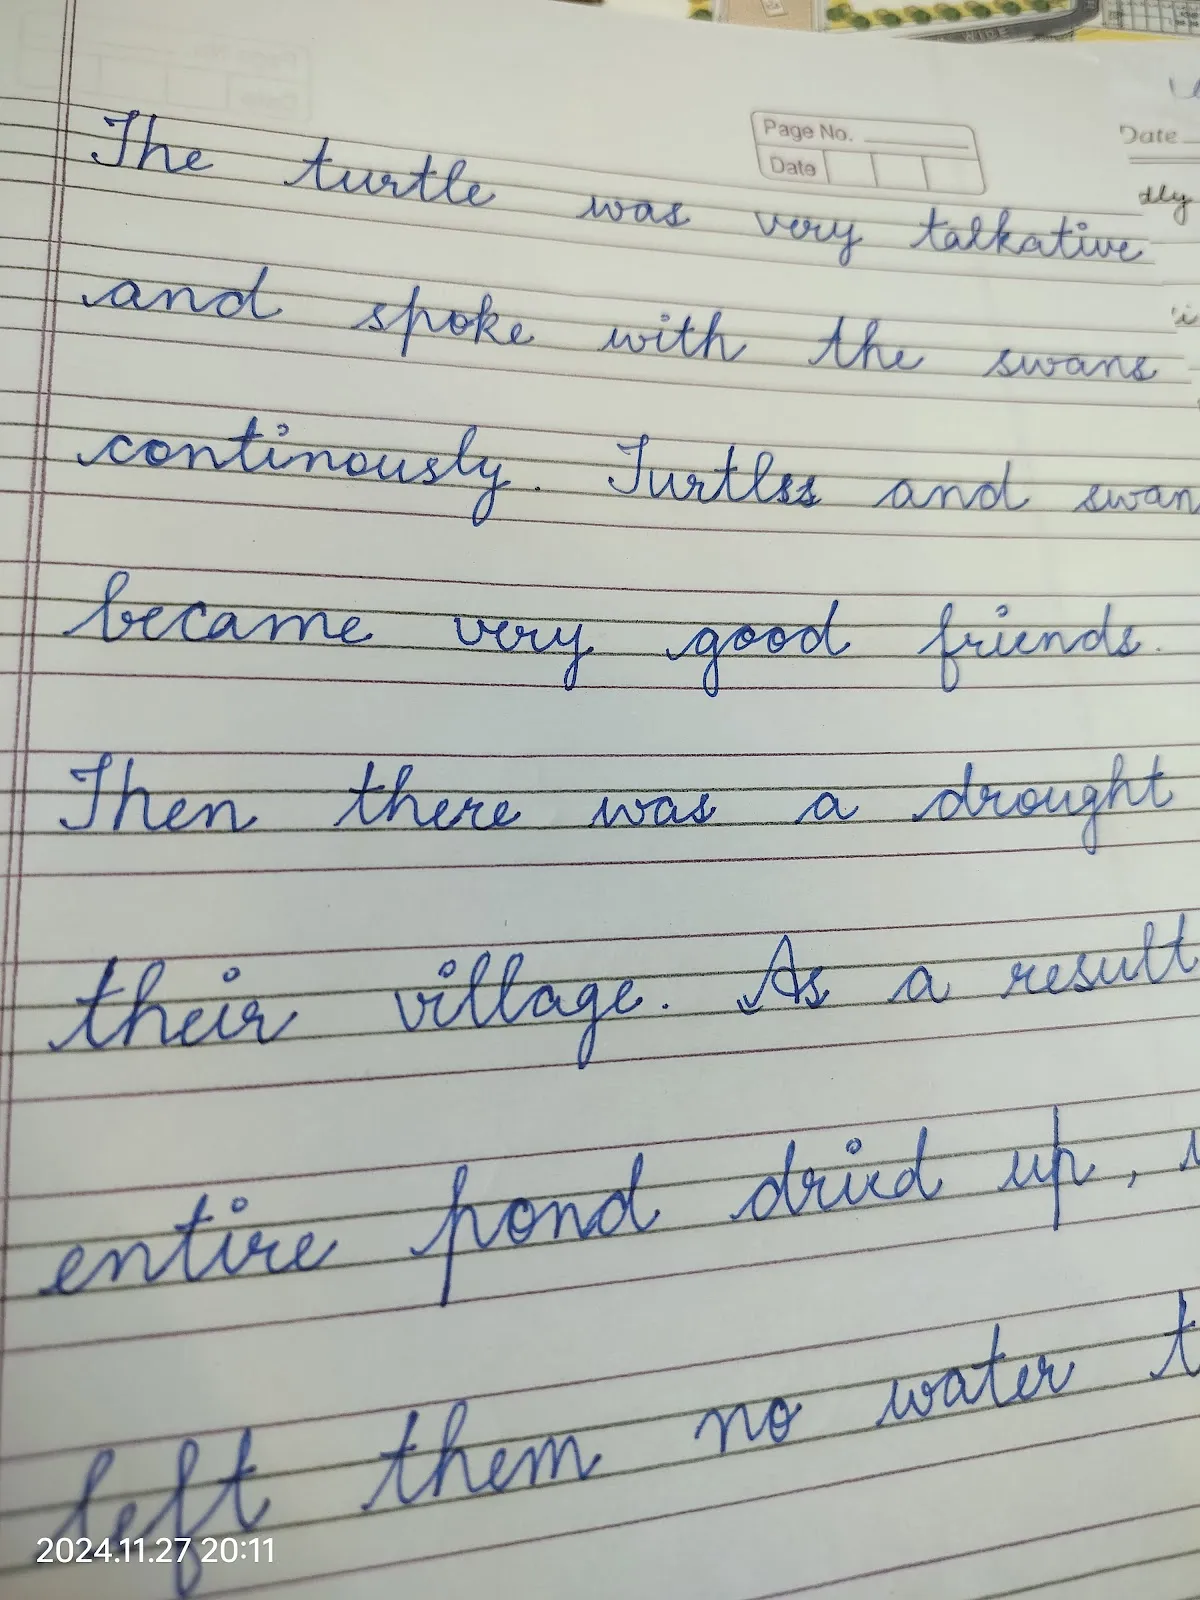 Page No.
Date
Date
dly
The turtle was very talkative
and spoke with the swans
continously. Turtlss and swan
became very good friends.
Then there was a drought
their village. As a result
entire pond dried up,
left them no water t
2024.11.27 20:11